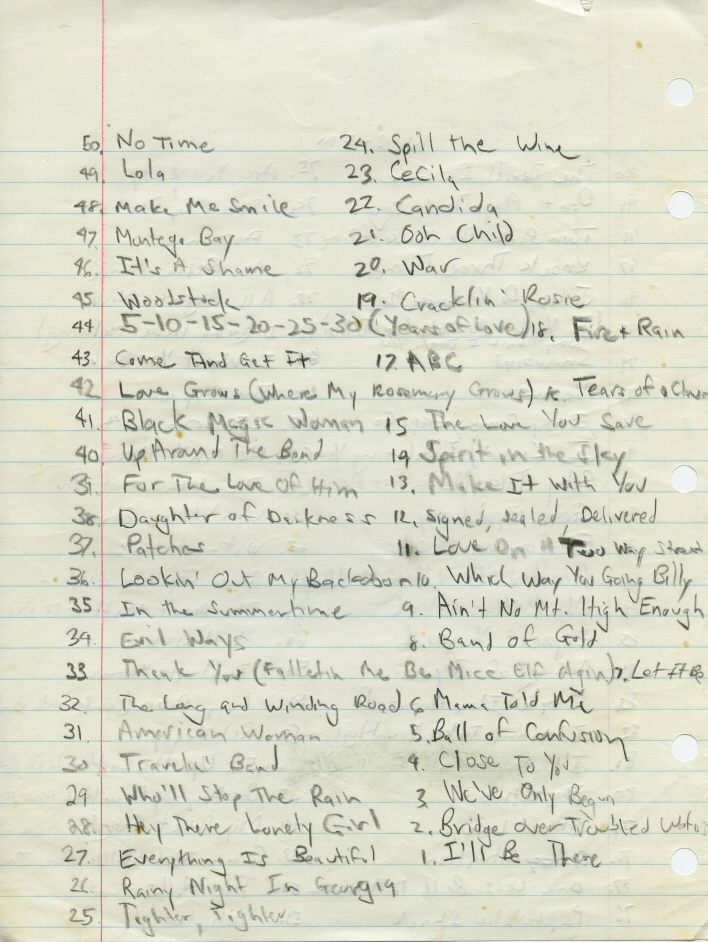 50. No Time
49. Lola
48. Make Me Smile
47. Muntego Bay
46. It's A Shame
45. Woodstock
44 5-10-15-20-25-30 (Years of Love)
43. Come And Get It
42 Love Grows (Where My Rosemary Grows)
41. Black Magic Woman
40. Up Around The Bend
39. For The Love Of Him
38. Daughter of Darkness
37. Patches
36. Lookin' Out My Backdoor
35. In the Summertime
34. Evil Ways
33 Thank You (Falletin Me Be Mice Elf Agin)
32. The Long and Winding Road
31. American Woman
30 Travelin' Band
29 Who'll Stop The Rain
28. Hey There Lonely Girl
27. Everything Is Beautiful
26. Rainy Night In Georgia
25. Tighter, Tighter
24. Spill the Wine
23. Cecily
22. Candida
21. Ooh Child
20. War
19. Cracklin' Rosie
18. Fire + Rain
17. ABC
16. Tears of a Clown
15 The Love You Save
14 Spirit in the Sky
13. Make It With You
12. Signed, Sealed, Delivered
11. Love On A Two Way Street
10. Which Way You Going Billy
9. Ain't No Mt. High Enough
8. Band of Gold
7. Let It Be
6 Mama Told Me
5. Ball of Confusion
4. Close To You
3 We've Only Begun
2. Bridge over Troubled Water
1. I'll Be There